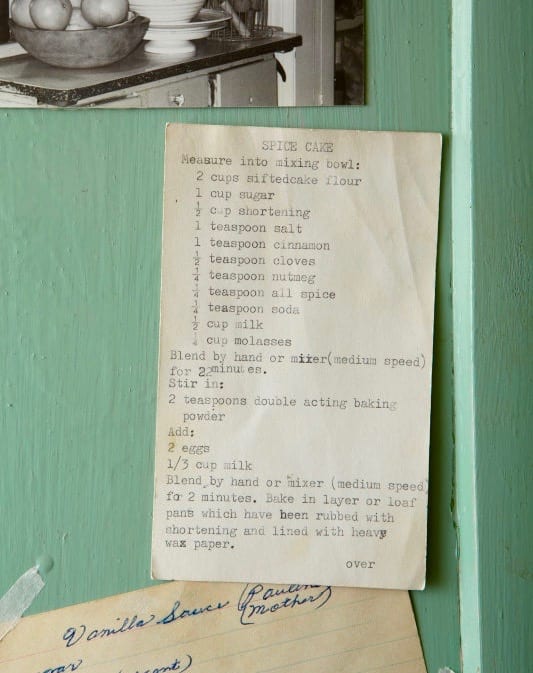 SPICE CAKE
Measure into mixing bowl:
2 cups siftedcake flour
1 cup sugar
½ cup shortening
1 teaspoon salt
1 teaspoon cinnamon
½ teaspoon cloves
¼ teaspoon nutmeg
¼ teaspoon all spice
¼ teaspoon soda
½ cup milk
cup molasses
Blend by hand or mixer(medium speed)
for minutes.
Stir in:
2 teaspoons double acting baking
powder
Add:
2 eggs
1/3 cup milk
Blend by hand or mixer (medium speed)
for 2 minutes. Bake in layer or loaf
pans which have been rubbed with
shortening and lined with heavy
wax paper.
over
Vanilla Sauce (Pauline
mother)